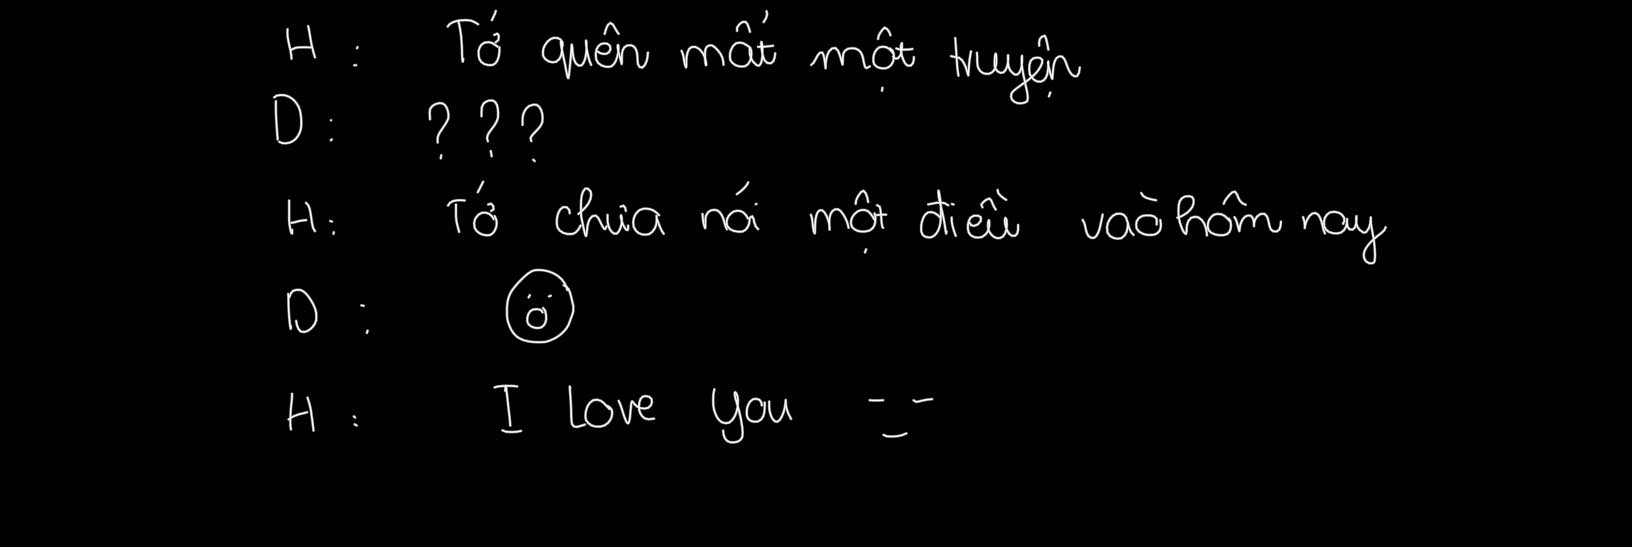 H : Tớ quên mất một truyện
D : ? ? ?
H : Tớ chưa nói một điều vào hôm nay
D :
H : I love you